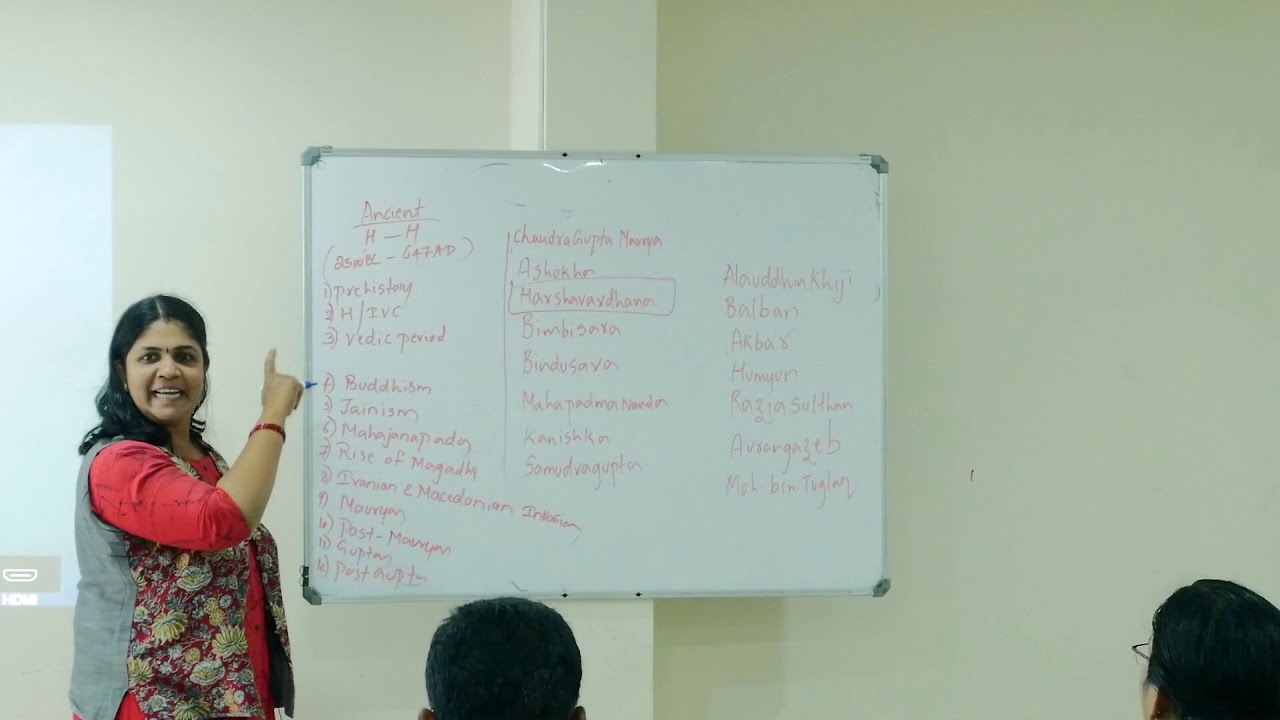 Ancient
H - H
(2500BC - 647AD)
1) Prehistory
2) H/IVC
3) Vedic period
4) Buddhism
5) Jainism
6) Mahajanapada
7) Rise of Magadh
8) Iranian & Macedonian Invasion
9) Mauryan
10) Post-Mauryan
11) Guptan
12) Post Guptan
ChandraGupta Maurya
Ashokha
Harshavardhana
Bimbisara
Bindusara
Mahapadma Nanda
Kanishka
Samudragupta
Alauddhin Khilji
Balban
Akbar
Humyun
Razia Sulthan
Aurangazeb
Moh. bin. Tuglaq
HDMI